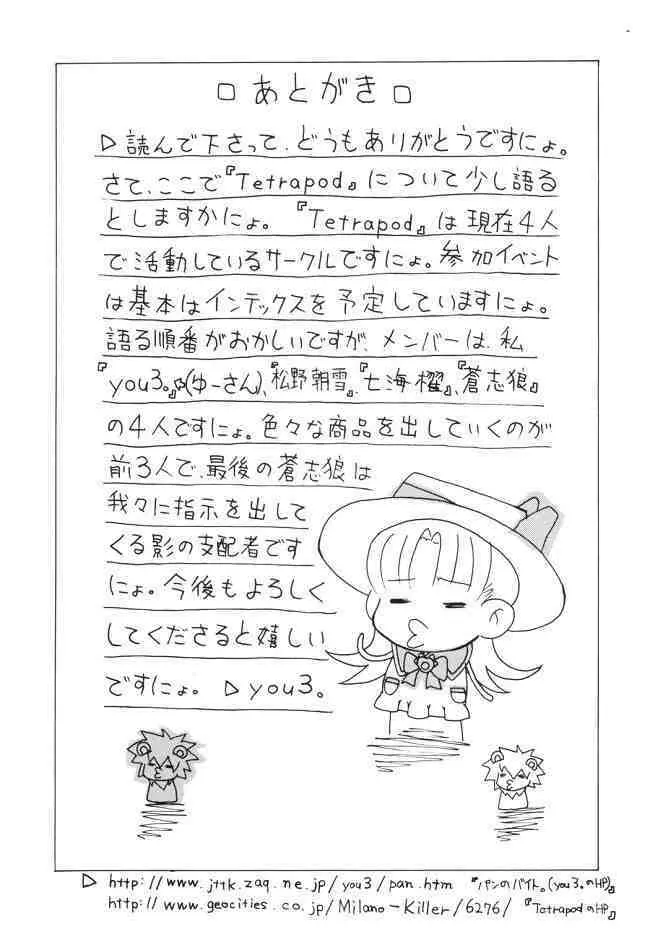 □あとがき□
▷読んで下さって、どうもありがとうですにょ。
さて、ここで『Tetrapod』について少し語る
としますかにょ。『Tetrapod』は現在4人
で活動しているサークルですにょ。参加イベント
は基本はインテックスを予定していますにょ。
語る順番がおかしいですが、メンバーは、私
『you3。』(ゆーさん)、『松野朝雪』、『七海櫂』、『蒼志狼』
の4人ですにょ。色々な商品を出していくのが
前3人で、最後の蒼志狼は
我々に指示を出して
くる影の支配者です
にょ。今後もよろしく
してくださると嬉しい
ですにょ。 ▷you3。
▷ http://www.jttk.zaq.ne.jp/you3/pan.htm 『パンのバイト。(you3。のHP)』
http://www.geocities.co.jp/Milano-Killer/6276/ 『TetrapodのHP』